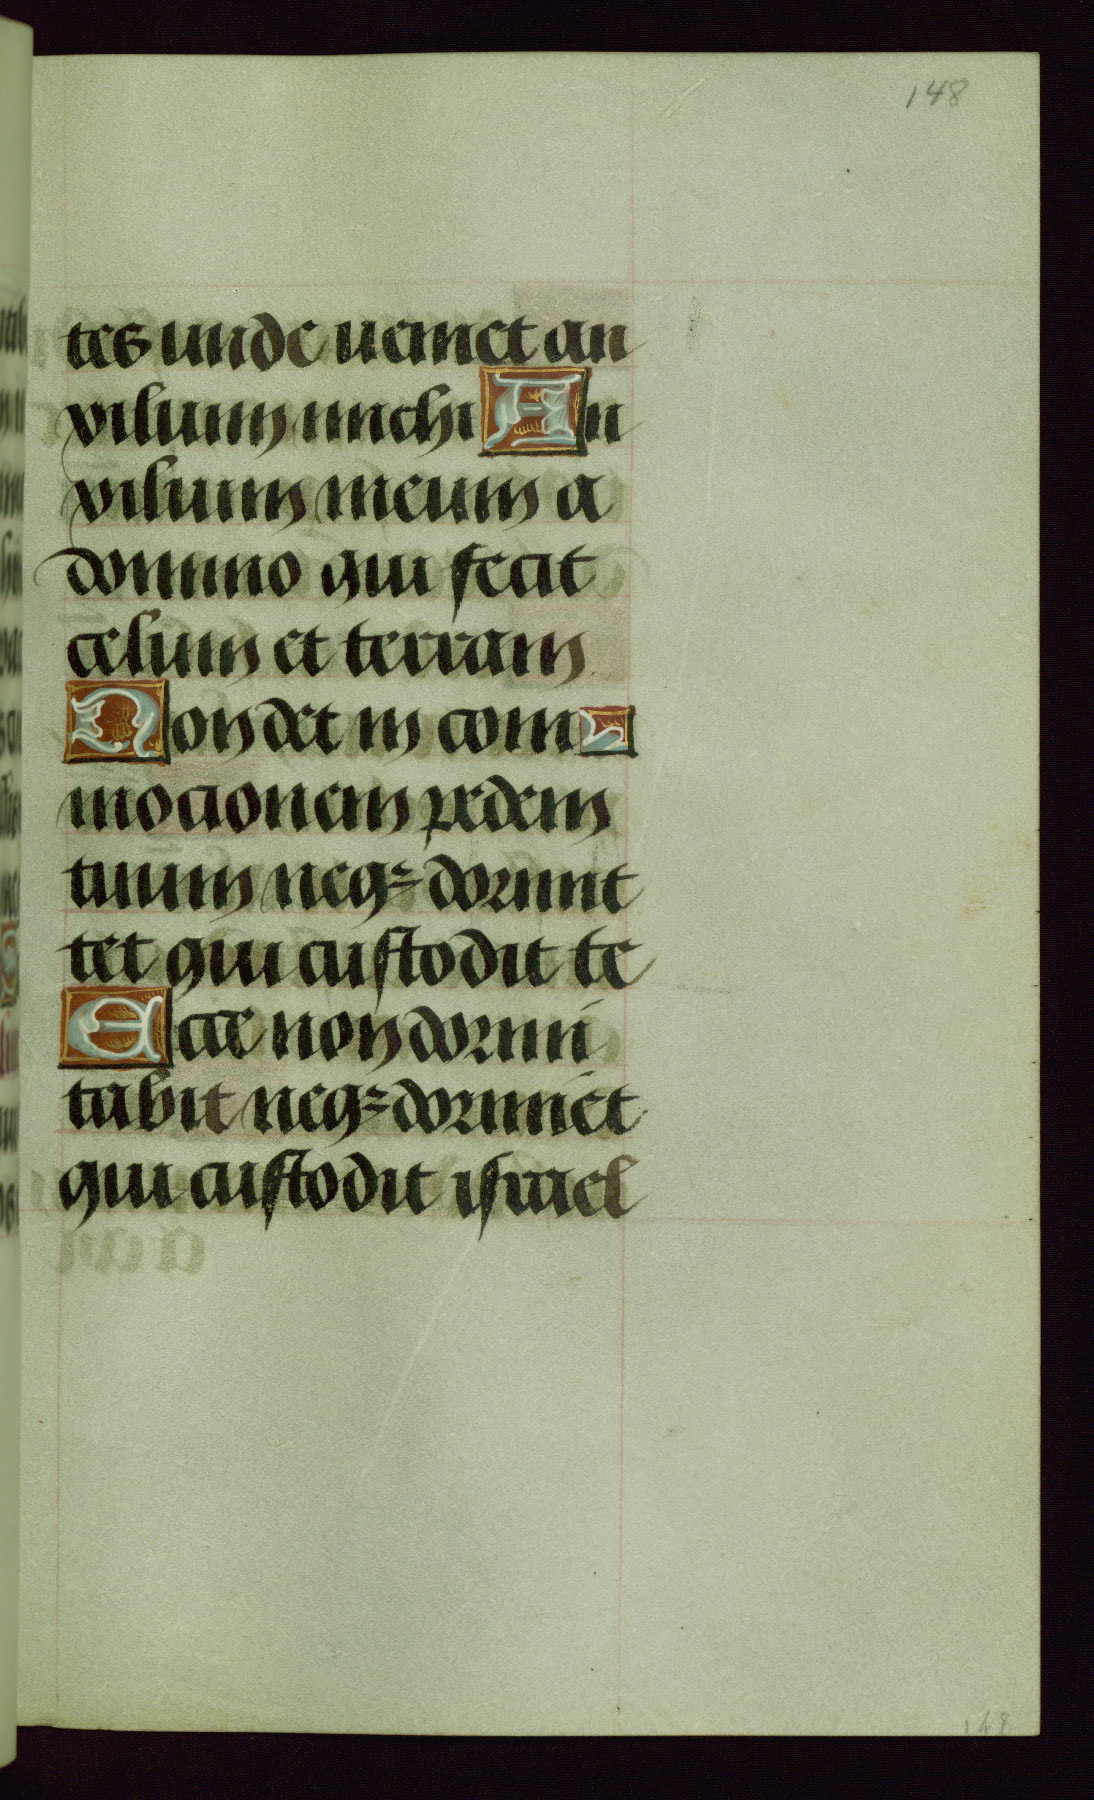 148
tes unde ueniet au
xilium michi Au
xilium meum a
domino qui fecit
celum et terram
Non det in com
mocionem pedem
tuum neqz dormit
tet qui custodit te
Ecce non dormi
tabit neqz dormiet
qui custodit israel
148